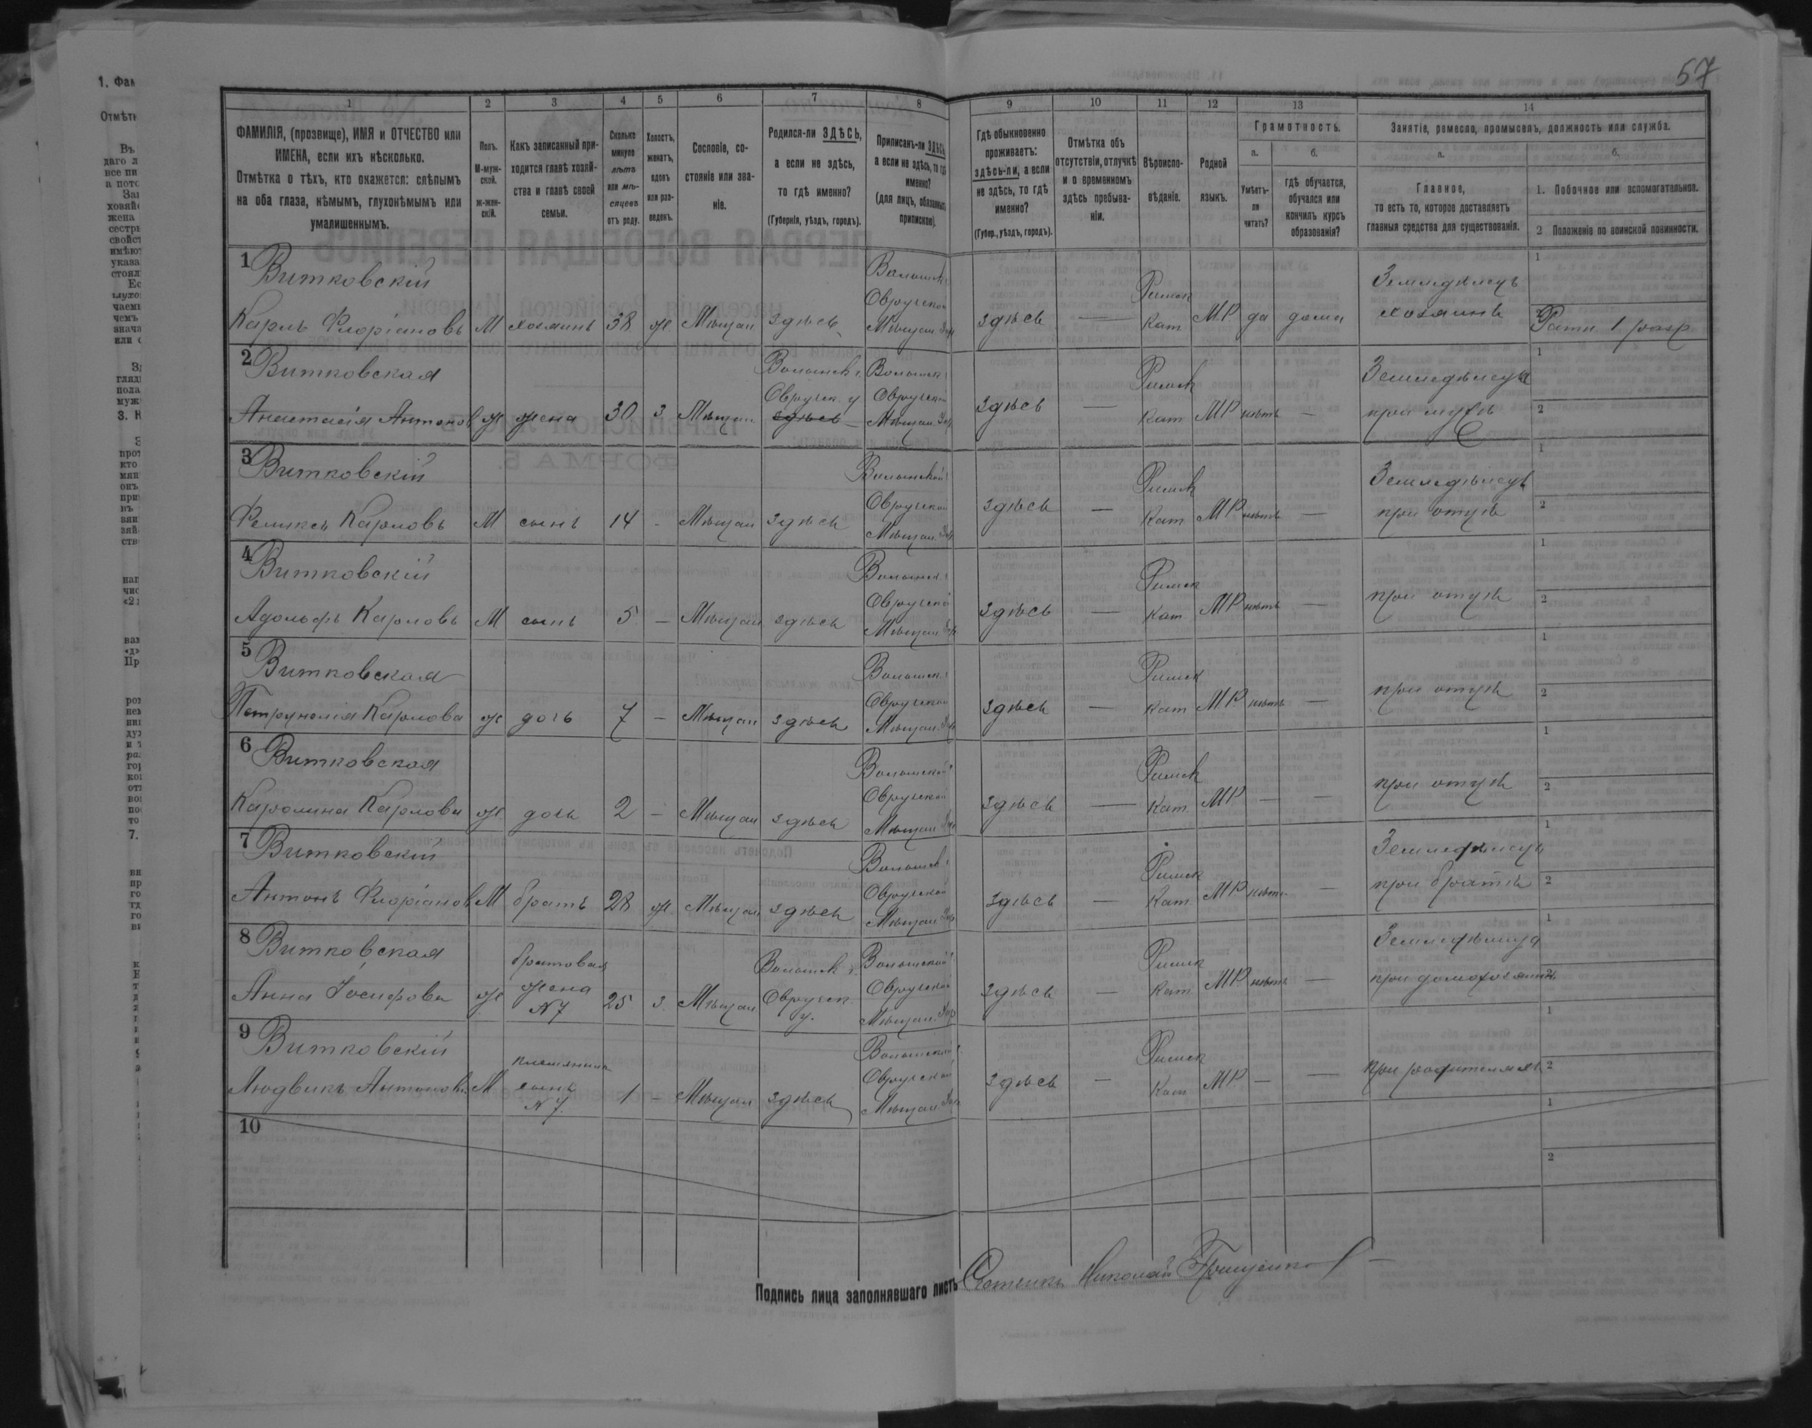 57
1 2 3 4 5 6 7 8 9 10 11 12 13 14
ФАМИЛІЯ, (прозвище), ИМЯ и ОТЧЕСТВО или
ИМЕНА, если ихъ нѣсколько.
Отмѣтка о тѣхъ, кто окажется: слѣпымъ
на оба глаза, нѣмымъ, глухонѣмымъ или
умалишеннымъ.
Полъ.
М-муж-
ской.
ж-жен-
скій.
Какъ записанный при-
ходится главѣ хозяй-
ства и главѣ своей
семьи.
Сколько
минуло
лѣтъ
или мѣ-
сяцевъ
отъ роду.
Холостъ,
женатъ,
вдовъ
или раз-
веденъ.
Сословіе, со-
стояніе или зва-
ніе.
Родился-ли ЗДѢСЬ,
а если не здѣсь,
то гдѣ именно?
(Губернія, уѣздъ, городъ).
Приписанъ-ли ЗДѢСЬ,
а если не здѣсь, то гдѣ
именно?
(для лицъ, обязанныхъ
припискою).
Гдѣ обыкновенно
проживаетъ:
здѣсь-ли, а если
не здѣсь, то гдѣ
именно?
(Губер., уѣздъ, городъ).
Отмѣтка объ
отсутствіи, отлучкѣ
и о временномъ
здѣсь пребыва-
ніи.
Вѣроиспо-
вѣданіе.
Родной
языкъ.
Грамотность.
а.
Умѣетъ-
ли
читать?
б.
гдѣ обучается,
обучался или
кончилъ курсъ
образованія?
Занятіе, ремесло, промыселъ, должность или служба.
а.
Главное,
то есть то, которое доставляетъ
главныя средства для существованія.
б.
1. Побочное или вспомогательное.
2 Положеніе по воинской повинности.
1 Витковскій
Карлъ Флоріановъ М хозяинъ 38 ж Мѣщан здѣсь
Волынск
Овручской
Мѣщан
здѣсь — Римск Кат МР да дома
Земледѣлецъ
хозяинъ
1
2 Ратн 1 разр
2 Витковская
Анастасія Антонов ж жена 30 з Мѣщан
Волынск г
Овручск у
здѣсь
Волынск
Овручской
Мѣщан
здѣсь — Римск Кат МР нѣтъ —
Земледѣлецъ
при мужѣ
1
2
3 Витковскій
Феликсъ Карловъ М сынъ 14 - Мѣщан здѣсь
Волынской
Овручской
Мѣщан
здѣсь — Римск Кат МР нѣтъ —
Земледѣлецъ
при отцѣ
1
2
4 Витковскій
Адольфъ Карловъ М сынъ 5 — Мѣщан здѣсь
Волынск
Овручской
Мѣщан
здѣсь — Римск Кат МР нѣтъ —
при отцѣ
1
2
5 Витковская
Петрунелія Карлова ж дочь 7 — Мѣщан здѣсь
Волынск
Овручской
Мѣщан
здѣсь — Римск Кат МР нѣтъ —
при отцѣ
1
2
6 Витковская
Каролина Карлова ж дочь 2 — Мѣщан здѣсь
Волынской
Овручской
Мѣщан
здѣсь — Римск Кат МР — —
при отцѣ
1
2
7 Витковскій
Антонъ Флоріанов М братъ 28 ж Мѣщан здѣсь
Волынск
Овручской
Мѣщан
здѣсь Римск Кат МР нѣтъ —
Земледѣлецъ
при братѣ
1
2
8 Витковская
Анна Іосифова ж
братовая
жена
N 7
25 з Мѣщан
Волынск г.
Овручск
у.
Волынской
Овручской
Мѣщан
здѣсь — Римск Кат МР нѣтъ —
при домохозяинѣ
1
2
9 Витковскій
Людвикъ Антоновъ М
племянник
сынъ
N 7
1 — Мѣщан здѣсь
Волынской
Овручской
Мѣщан
здѣсь — Римск Кат МР — —
при родителяхъ
1
2
10
1
2
Подпись лица заполнявшаго листъ Николай